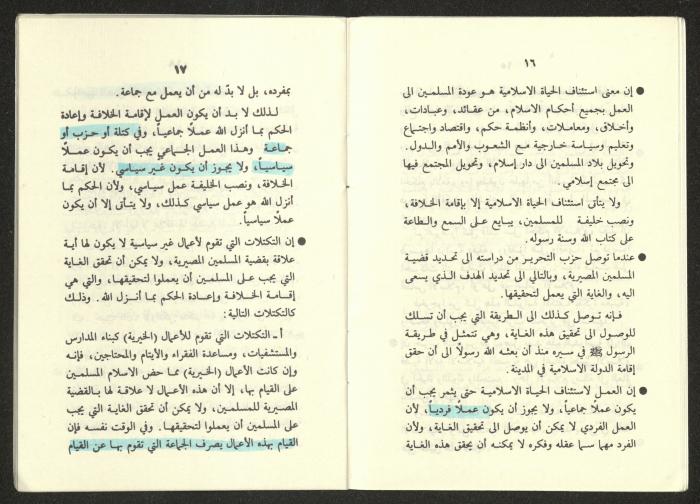 ١٦
● إن معنى استئناف الحياة الاسلامية هـو عودة المسلمين الى
العمل بجميع أحكام الاسلام، من عقائد، وعبادات،
وأخلاق، ومعاملات، وأنظمة حكم، واقتصاد واجتماع
وتعليم وسياسة خارجية مـع الشعوب والأمم والـدول.
وتحويل بلاد المسلمين الى دار إسلام، وتحويل المجتمع فيها
الى مجتمع إسلامي.
ولا يتأتى استئناف الحياة الاسلامية إلا بإقامة الخلافة،
ونصب خليفة للمسلمين، يبايع على السمع والطاعة
على كتاب الله وسنة رسوله.
● عندما توصل حزب التحرير من دراسته الى تحديد قضية
المسلمين المصيرية، وبالتالي الى تحديد الهدف الذي يسعى
اليه، والغاية التي يعمل لتحقيقها.
فـإنه توصل كـذلك الى الطريقة التي يجب أن تسلك
للوصول الى تحقيق هذه الغاية، وهي تتمثل في طريقة
الرسول ﷺ في سيره منذ أن بعثه الله رسولًا الى أن حقق
إقامة الدولة الاسلامية في المدينة.
● إن العمـل لاستئناف الحياة الاسلامية حتى يثمر يجب أن
يكون عملًا جماعياً، ولا يجوز أن يكون عملًا فردياً، لأن
العمل الفردي لا يمكن أن يوصل الى تحقيق الغاية، ولأن
الفرد مهما سما عقله وفكره لا يمكنه أن يحقق هذه الغاية
١٧
بمفرده، بل لا بدّ له من أن يعمل مع جماعة.
لـذلك لا بـد أن يكون العمـل لإقامـة الخلافـة وإعادة
الحكم بمـا أنزل الله عمـلًا جماعياً، وفي كتلة أو حـزب أو
جماعـة وهـذا العمل الجـماعي يجب أن يكـون عمـلًا
سيـاسيـاً، ولا يجـوز أن يكون غـير سياسي. لأن إقـامـة
الخلافة، ونصب الخليفة عمل سياسي، ولأن الحكم بمـا
أنزل الله هو عمل سياسي كـذلك، ولا يتـأتى إلا أن يكون
عملًا سياسياً.
● إن التكتلات التي تقوم لأعمال غير سياسية لا يكون لها أية
علاقة بقضية المسلمين المصيرية، ولا يمكن أن تحقق الغاية
التي يجب على المسلمين أن يعملوا لتحقيقهـا، والتي هي
إقـامـة الخـلافـة وإعـادة الحكم بمـا أنـزل الله. وذلـك
كالتكتلات التالية:
أ ـ التكتلات التي تقوم للأعمال (الخيرية) كبناء المدارس
والمستشفيات، ومساعدة الفقراء والأيتام والمحتاجين، فإنه
وإن كانت الأعمال (الخيرية) ممـا حض الاسلام المسلمين
على القيام بها، إلا أن هذه الأعـمال لا علاقـة لها بالقضية
المصيرية للمسلمين، ولا يمكن أن تحقق الغاية التي يجب
على المسلمين أن يعملوا لتحقيقها. وفي الوقت نفسه فإن
القيام بهذه الأعمال يصرف الجماعة التي تقوم بها عن القيام